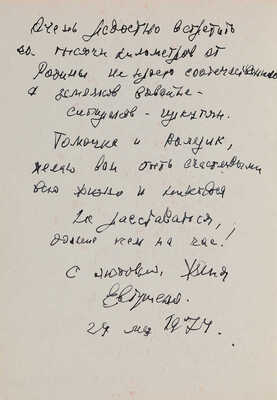 Очень радостно встретить
за тысячи километров от
Родины не просто соотечественников
а земляков
сибиряков - иркутян.
Томочка и
желаю вам быть счастливыми
всю жизнь и никогда
не расставаться,
больше чем на час!
С любовью, Женя
Евтушенко.
29 мая 1974.